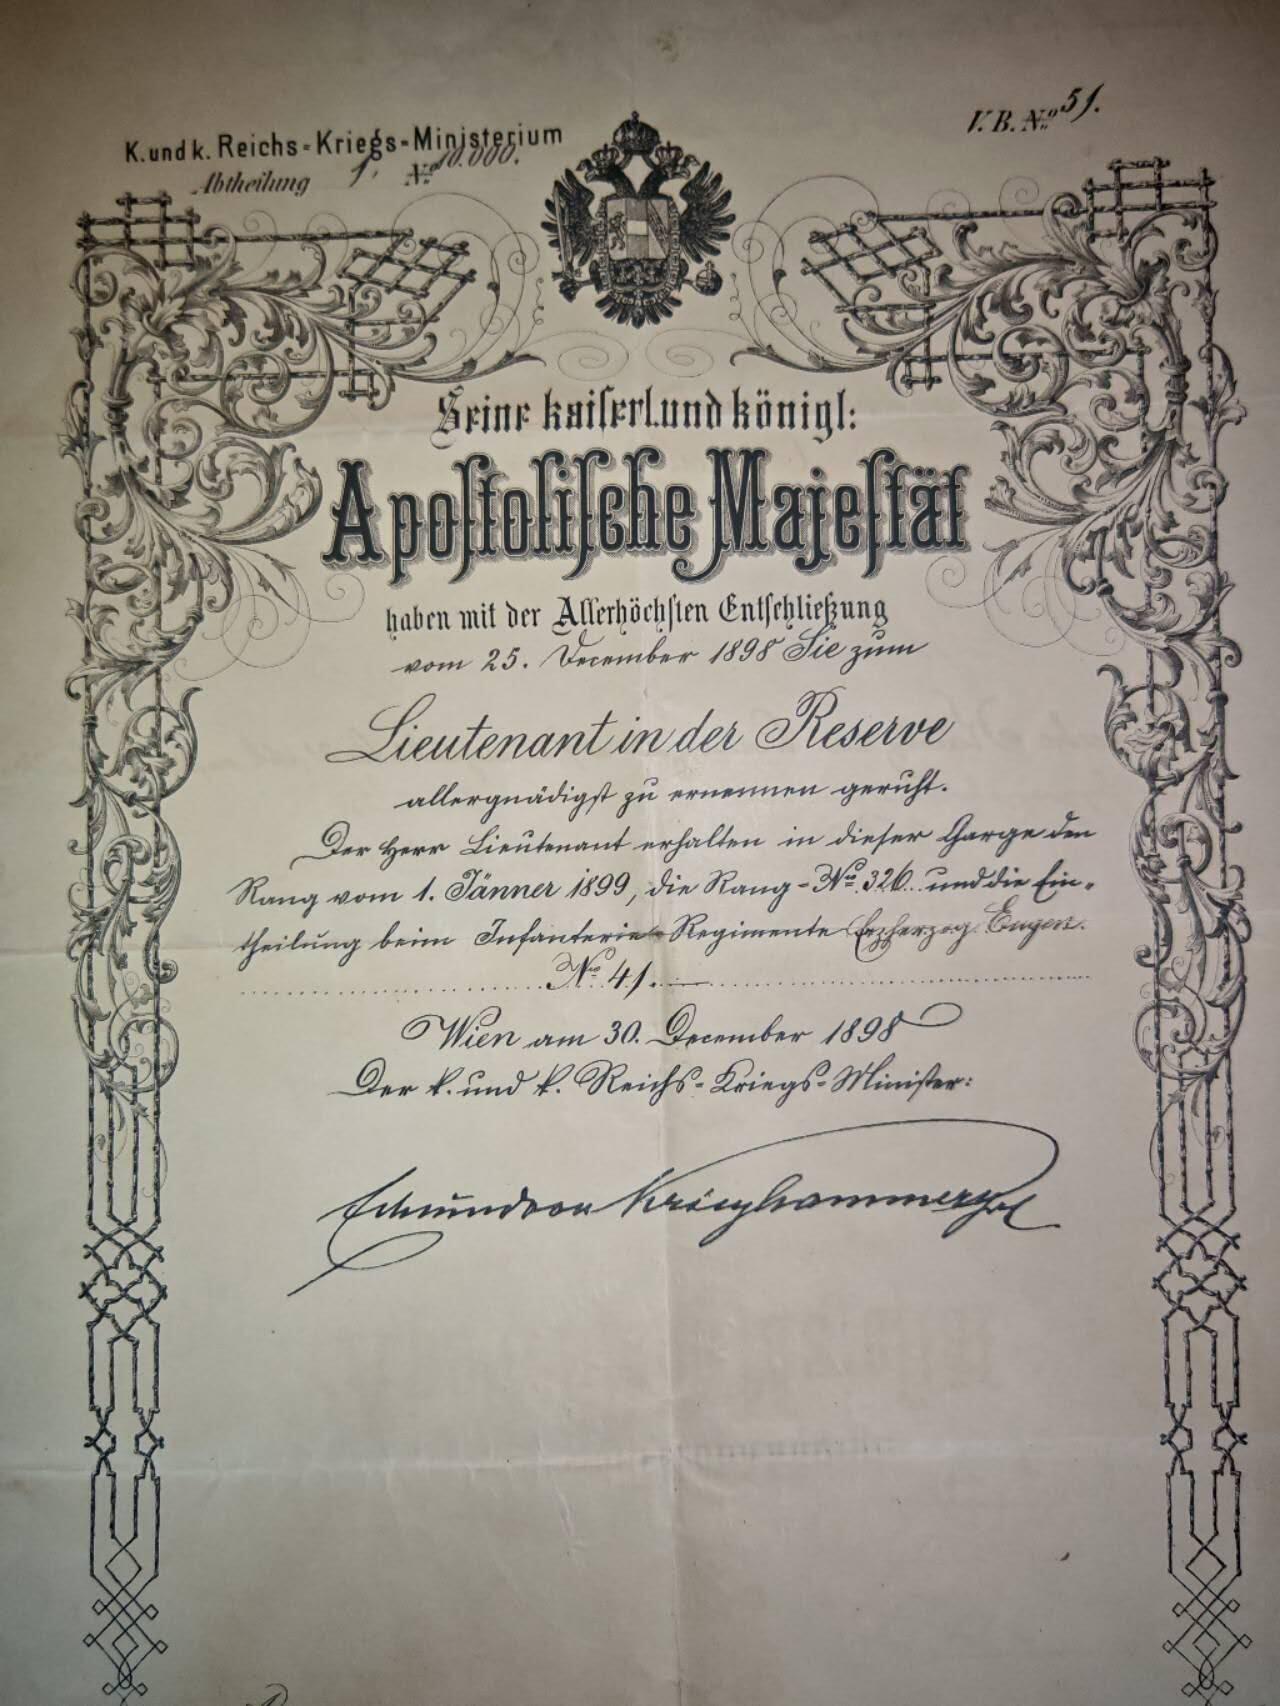 K. und k. Reichs-Kriegs-Ministerium
Abtheilung 1, No 10.000.
V. B. No 51.
Seine kaiserl. und königl:
Apostolische Majestät
haben mit der Allerhöchsten Entschließung
vom 25. December 1898 Sie zum
Lieutenant in der Reserve
allergnädigst zu ernennen geruht.
Der Herr Lieutenant erhalten in dieser Charge den
Rang vom 1. Jänner 1899, die Rang-No 326 und die Ein-
theilung beim Infanterie-Regimente Erzherzog Eugen.
No 41.
Wien am 30. December 1898
Der k. und k. Reichs-Kriegs-Minister:
Edmund von Krieghammer